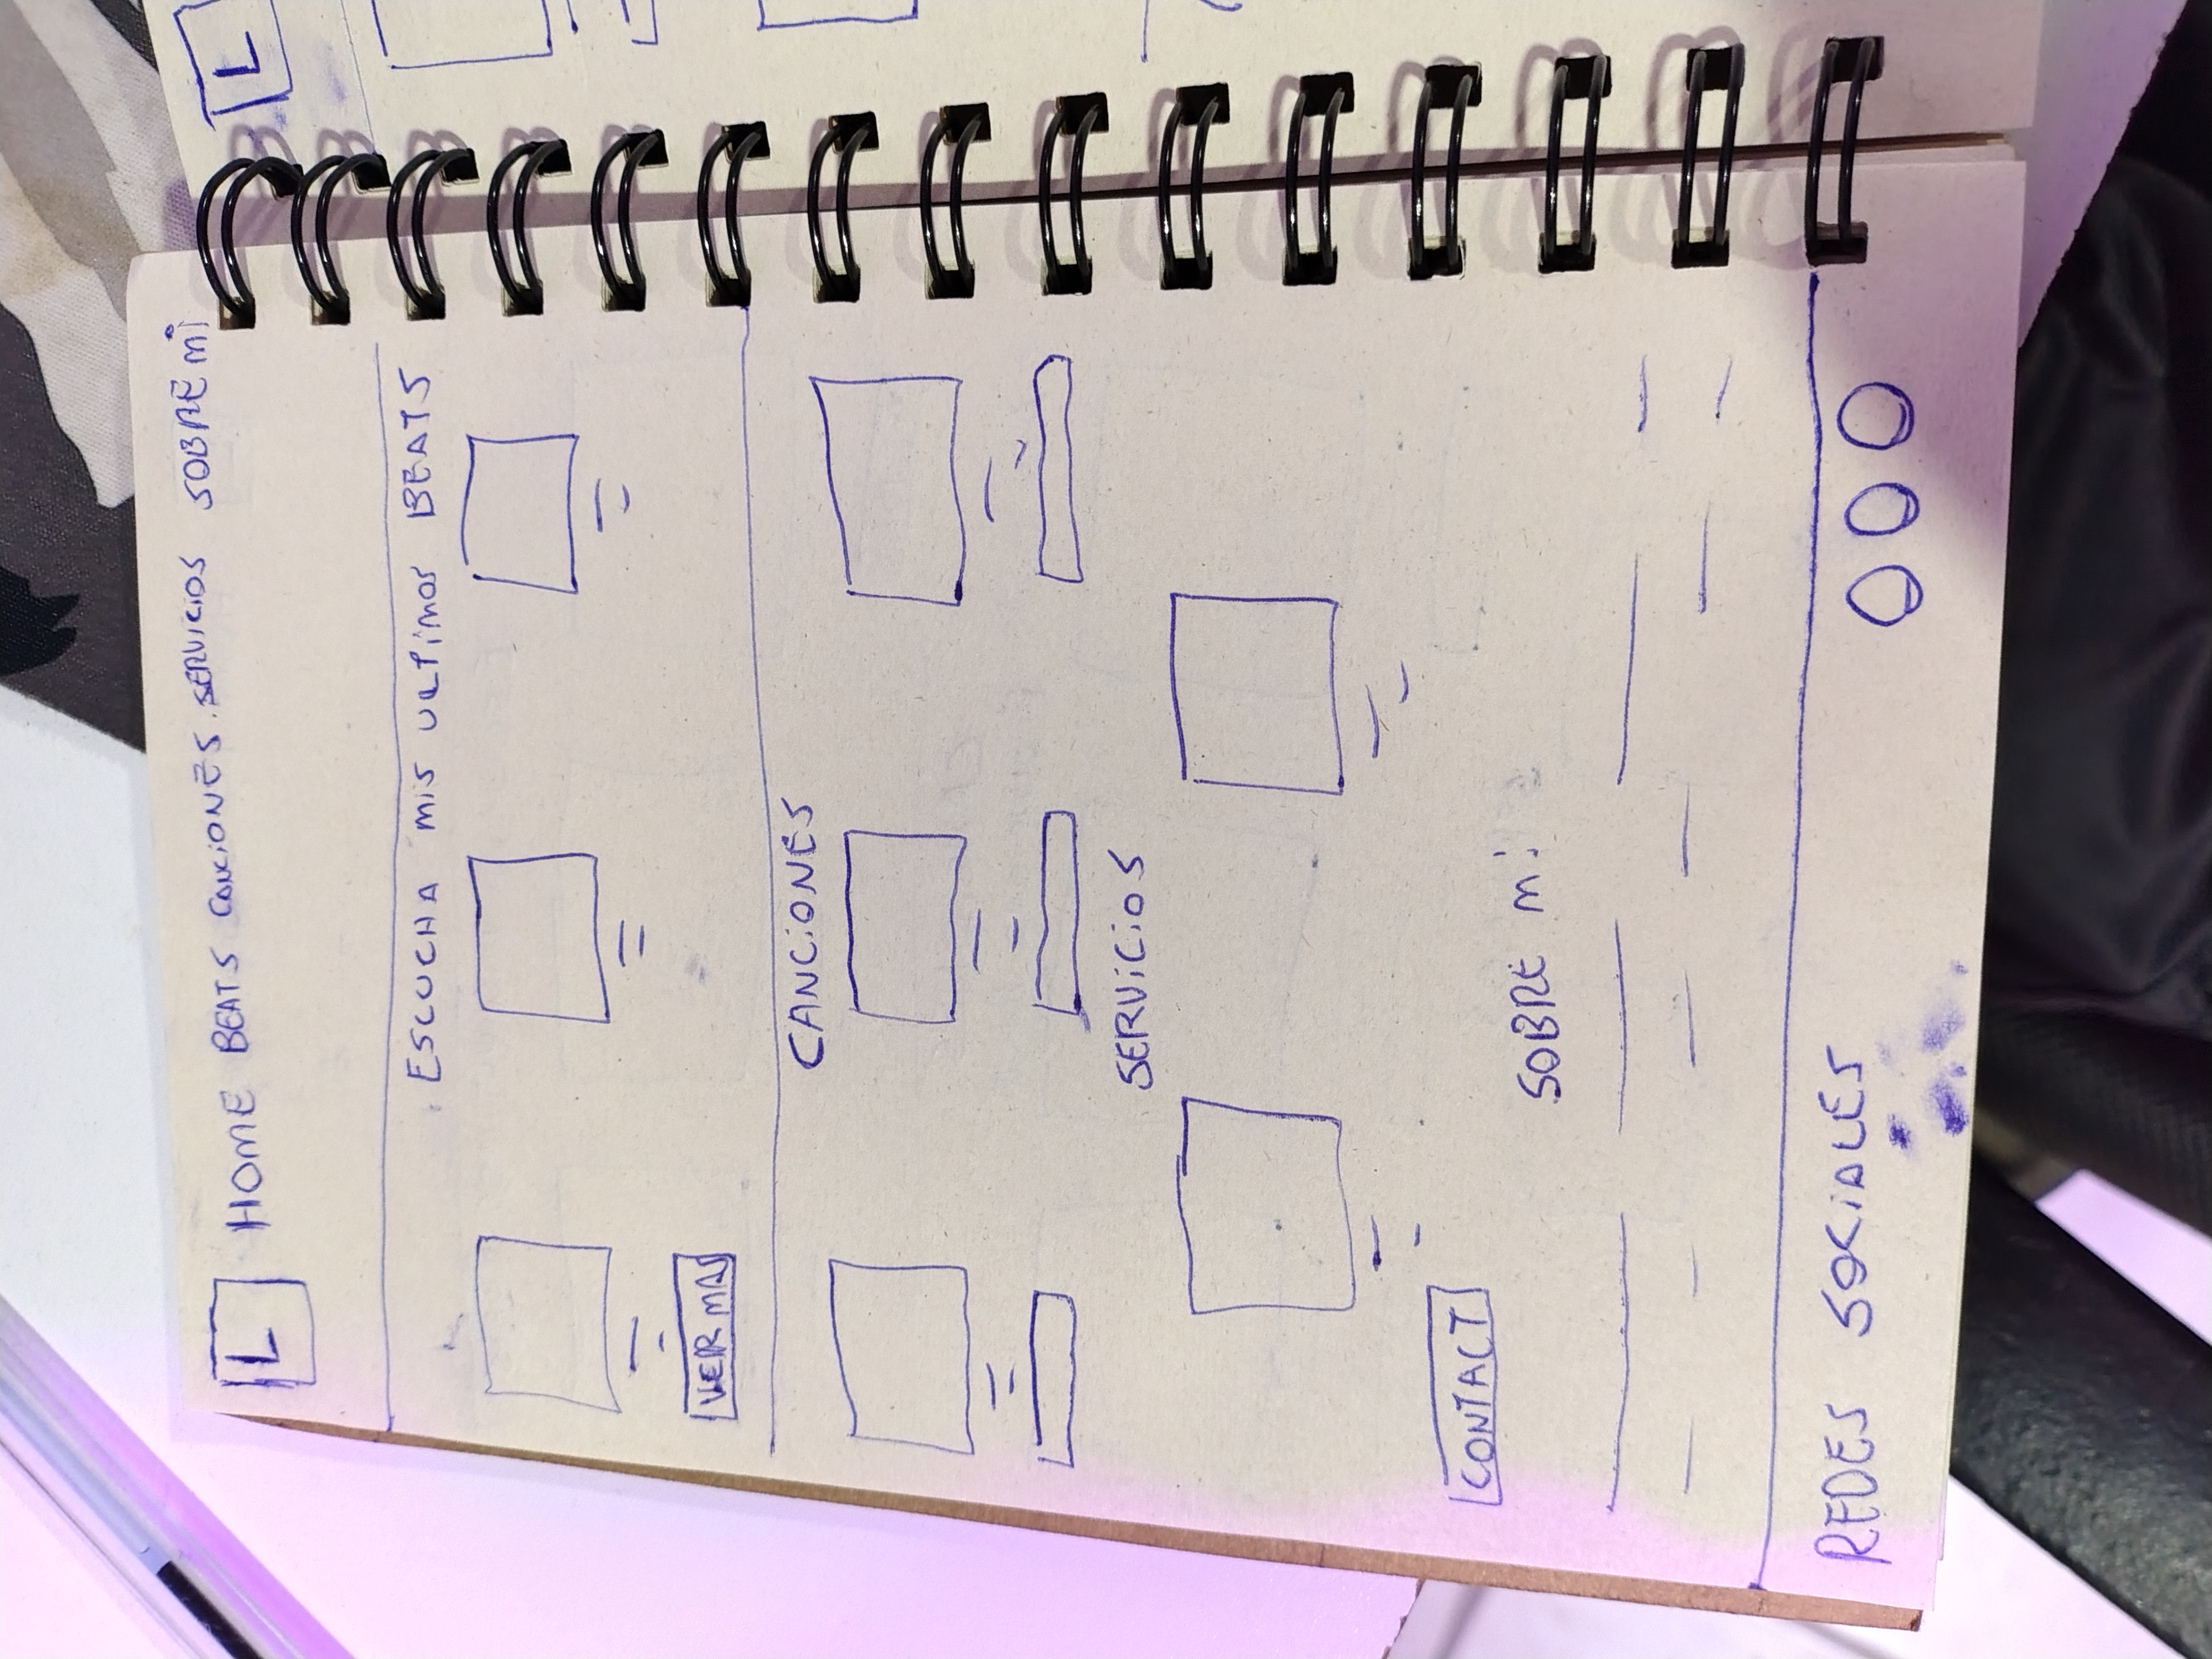 L HOME BEATS CANCIONES. SERVICIOS SOBRE Mi
ESCUCHA MiS ULTiMOS BEATS
VER MAS
CANCiONES
SERViCiOS
CONTACT
SOBRE Mi
REDES SOCiALES
L